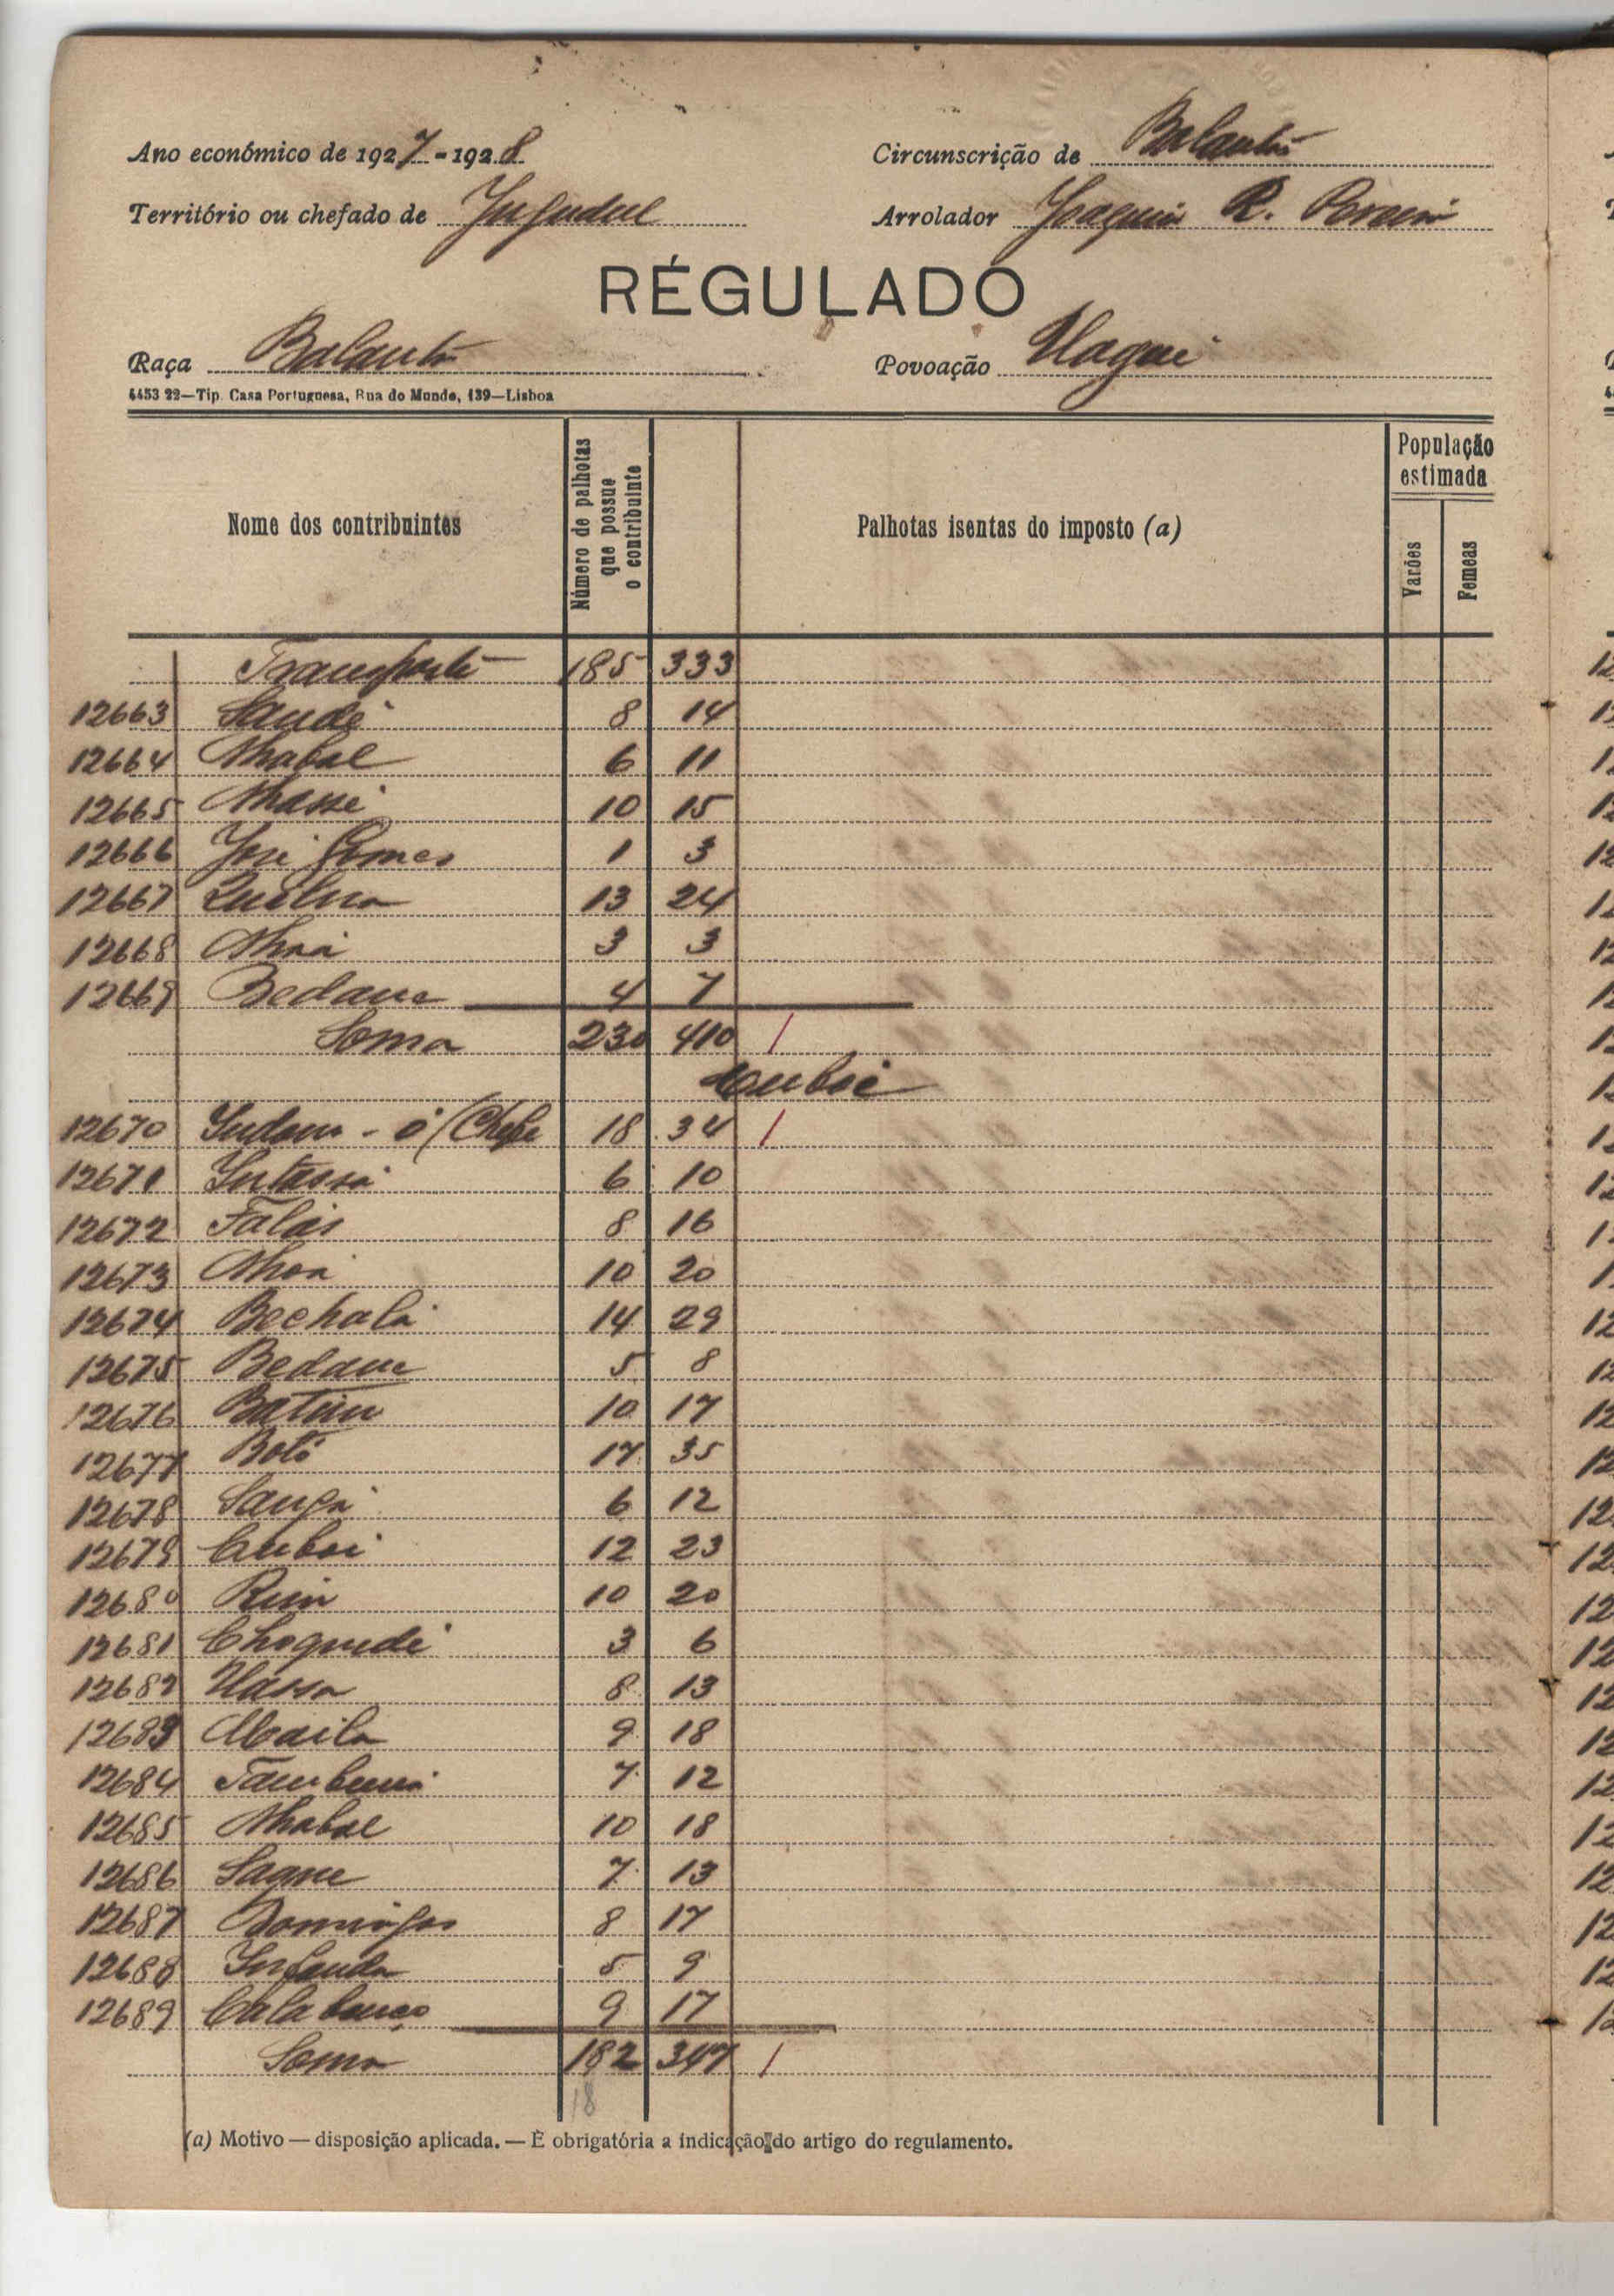 Ano económico de 1927-1928 Circunscrição de Balanta
Território ou chefado de Jugudul Arrolador Joaquim R.
RÉGULADO
Raça Balanta Povoação Uaque
4453 22—Tip. Casa Portuguesa, Rua do Mundo, 139—Lisboa
Nome dos contribuintes Número de palhotas que possue o contribuinte Palhotas isentas do imposto (a) População estimada Varões Femeas
Transporte 185 333
12663 Saude 8 14
12664 Nhabal 6 11
12665 Nhassé 10 15
12666 José Gomes 1 3
12667 13 24
12668 3 3
12669 Bedam 4 7
Soma 230 410 /
Cuboi
12670 (Chefe 18 34 /
12671 6 10
12672 Falás 8 16
12673 10 20
12674 Bechalá 14 29
12675 Bedam 5 8
12676 Batim 10 17
12677 Botó 17 35
12678 Sanga 6 12
12679 Cuboi 12 23
12680 10 20
12681 Choquidé 3 6
12682 8 13
12683 9 18
12684 7 12
12685 Nhabal 10 18
12686 Sagne 7 13
12687 Domingos 8 17
12688 Infanda 5 9
12689 9 17
Soma 182 347 /
18
(a) Motivo — disposição aplicada. — É obrigatória a indicação do artigo do regulamento.